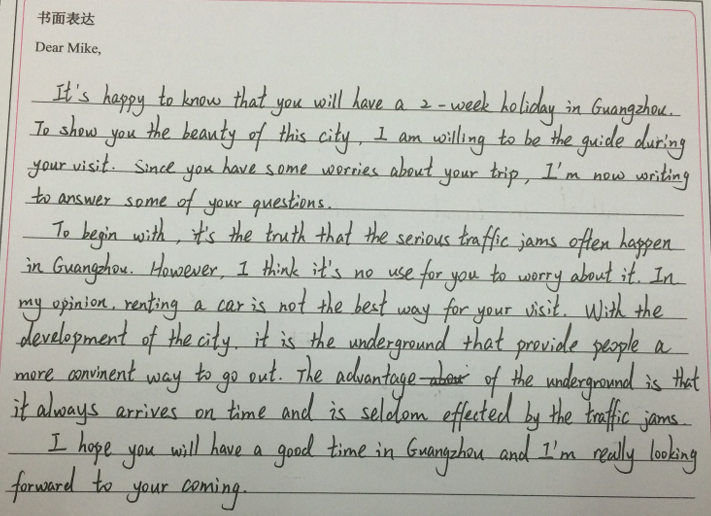 书面表达
Dear Mike,
It's happy to know that you will have a 2-week holiday in Guangzhou.
To show you the beauty of this city, I am willing to be the guide during
your visit. Since you have some worries about your trip, I'm now writing
to answer some of your questions.
To begin with, it's the truth that the serious traffic jams often happen
in Guangzhou. However, I think it's no use for you to worry about it. In
my opinion, renting a car is not the best way for your visit. With the
development of the city, it is the underground that provide people a
more convinent way to go out. The advantage of the underground is that
it always arrives on time and is seldom effected by the traffic jams.
I hope you will have a good time in Guangzhou and I'm really looking
forward to your coming.